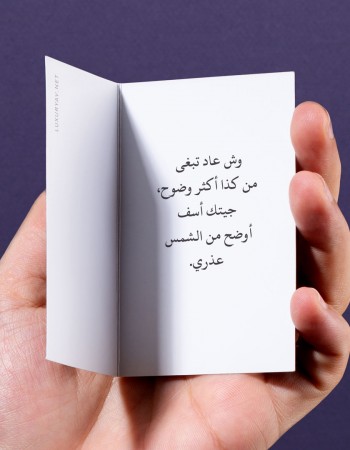 وش عاد تبغى
من كذا أكثر وضوح،
جيتك أسف
أوضح من الشمس
عذري.
LUXURYAV.NET